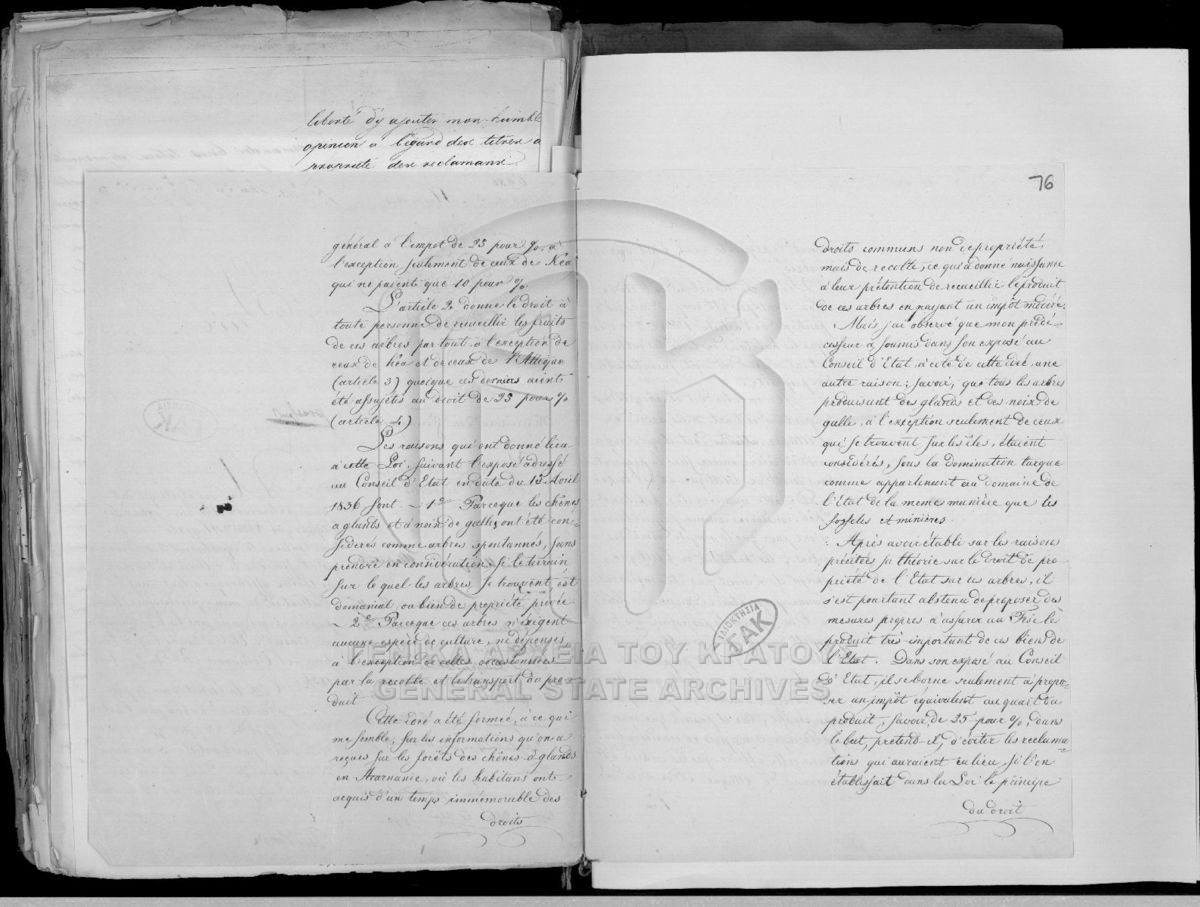 liberté d'y ajouter mon humble
opinion à l'égard des titres
propriété des reclamans
général à l'impot de 25 pour % à
l'exception seulement de ceux de Kéa
qui ne paient que 10 pour %.
L'article 2 donne le droit à
toute personne de recueillir les fruits
de ces arbres partout à l'exception de
ceux de Kéa et de ceux de l'Attique
(article 3) quoique ces derniers aient
été assujetis au droit de 25 pour %
(article 4)
Les raisons qui ont donné lieu
à cette Loi, suivant l'exposé adressé
au Conseil d'Etat en date du 15 Avril
1836 sont _ 1° Parceque les chênes
a glands et à noix de galles, ont été con-
sidérés comme arbres spontannés, sans
prendre en considération si le terrain
sur le quel les arbres se trouvent est
domanial, ou bien de propriété privée
_ 2° Parceque ces arbres n'exigent
aucune espèce de culture, ni dépenses
à l'exception de celles occasionnées
par la recolte et le transport du pro-
duit
Cette idée a été formée, à ce qui
me semble, sur les informations qu'on a
reçues sur les forêts des chênes à glands
en Acarnanie, où les habitans ont
acquis d'un temps immémorable des
droits
76
droits communs non de propriété,
mais de recolte, ce qui a donné naissance
à leur prétention de recueillir le produit
de ces arbres en payant un impôt modéré.
Mais j'ai observé que mon prédé-
cesseur a soumis dans son exposé au
Conseil d'Etat, à coté de cette idée, une
autre raison; savoir, que tous les arbres
produisant des glands et des noix de
galle, à l'exception seulement de ceux
qui se trouvent sur les îles, étaient
considérés, sous la domination turque
comme appartenant au domaine de
l'état de la meme manière que les
fossiles et minières.
Après avoir établi sur les raisons
précitées sa théorie sur le droit de pro-
priété de l'Etat sur ces arbres, il
s'est pourtant abstenu de proposer des
mesures propres à assurer au Fisc le
produit très-important de ces biens de
l'Etat. Dans son exposé au Conseil
d'Etat, il se borne seulement à propo-
ser un impôt équivalent au quart du
produit, savoir, de 25 pour %, dans
le but, prétend-il, d'éviter les reclama-
tions qui auraient eu lieu, si l'on
établissait dans la Loi le principe
du droit
ΙΔΙΟΚΤΗΣΙΑ
ΓΑΚ
ΓΕΝΙΚΑ ΑΡΧΕΙΑ ΤΟΥ ΚΡΑΤΟΥΣ
GENERAL STATE ARCHIVES